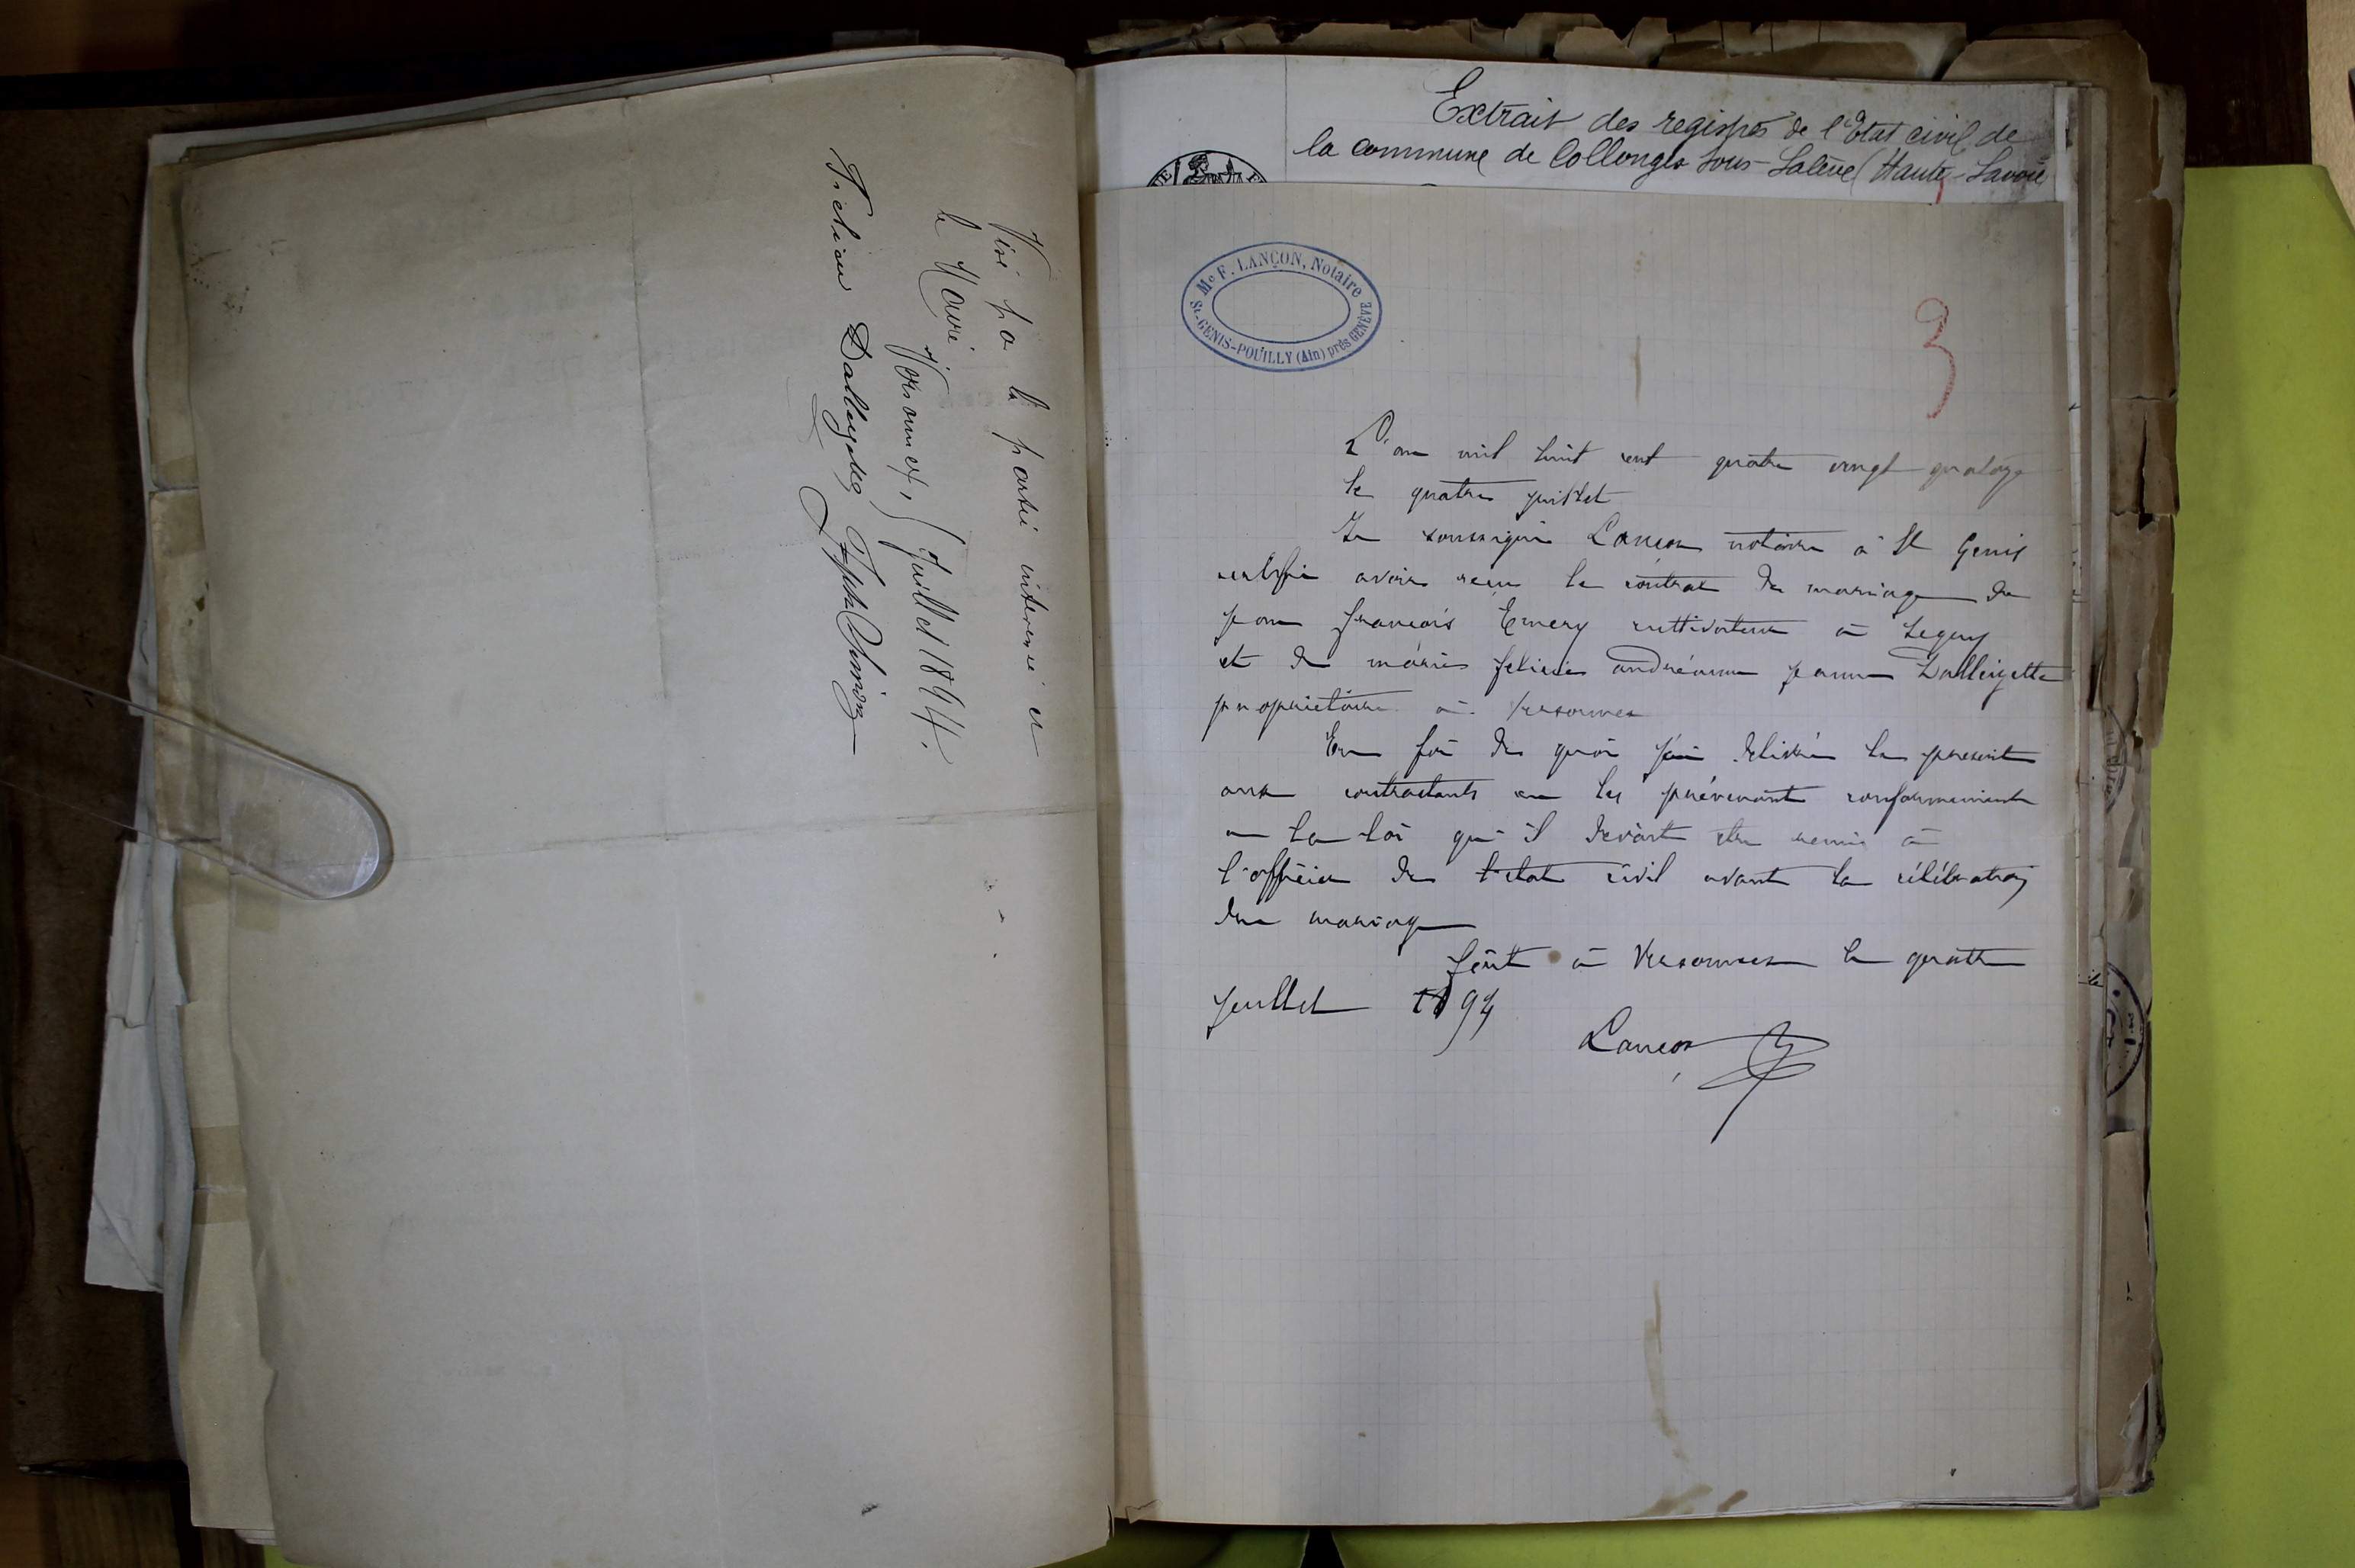 Visé par la partie intéressée et
le Maire
Versonnex, 4 Juillet 1894.
Félicie Dalleizette
Extrait des registres de l'Etat civil de
la commune de Collonges sous-Salève (Haute-Savoie
Me F. LANÇON, Notaire
St-GENIS-POUILLY (Ain) près GENÈVE
3
L'an mil huit cent quatre vingt quatorze
le quatre juillet
Je soussigné Lançon notaire à St Genis
certifie avoir reçu le contrat de mariage de
françois Emery cultivateur à Segny
et de marie felicie andréanne jeanne Dalleizette
propriétaire à Versonnex
En foi de quoi j'ai délivré le present
aux contractants en les prévenant conformement
a la loi qu'il devait etre remis à
l'officier de l'etat civil avant la célébration
du mariage
fait à Versonnex le quatre
juillet 1894
Lançon